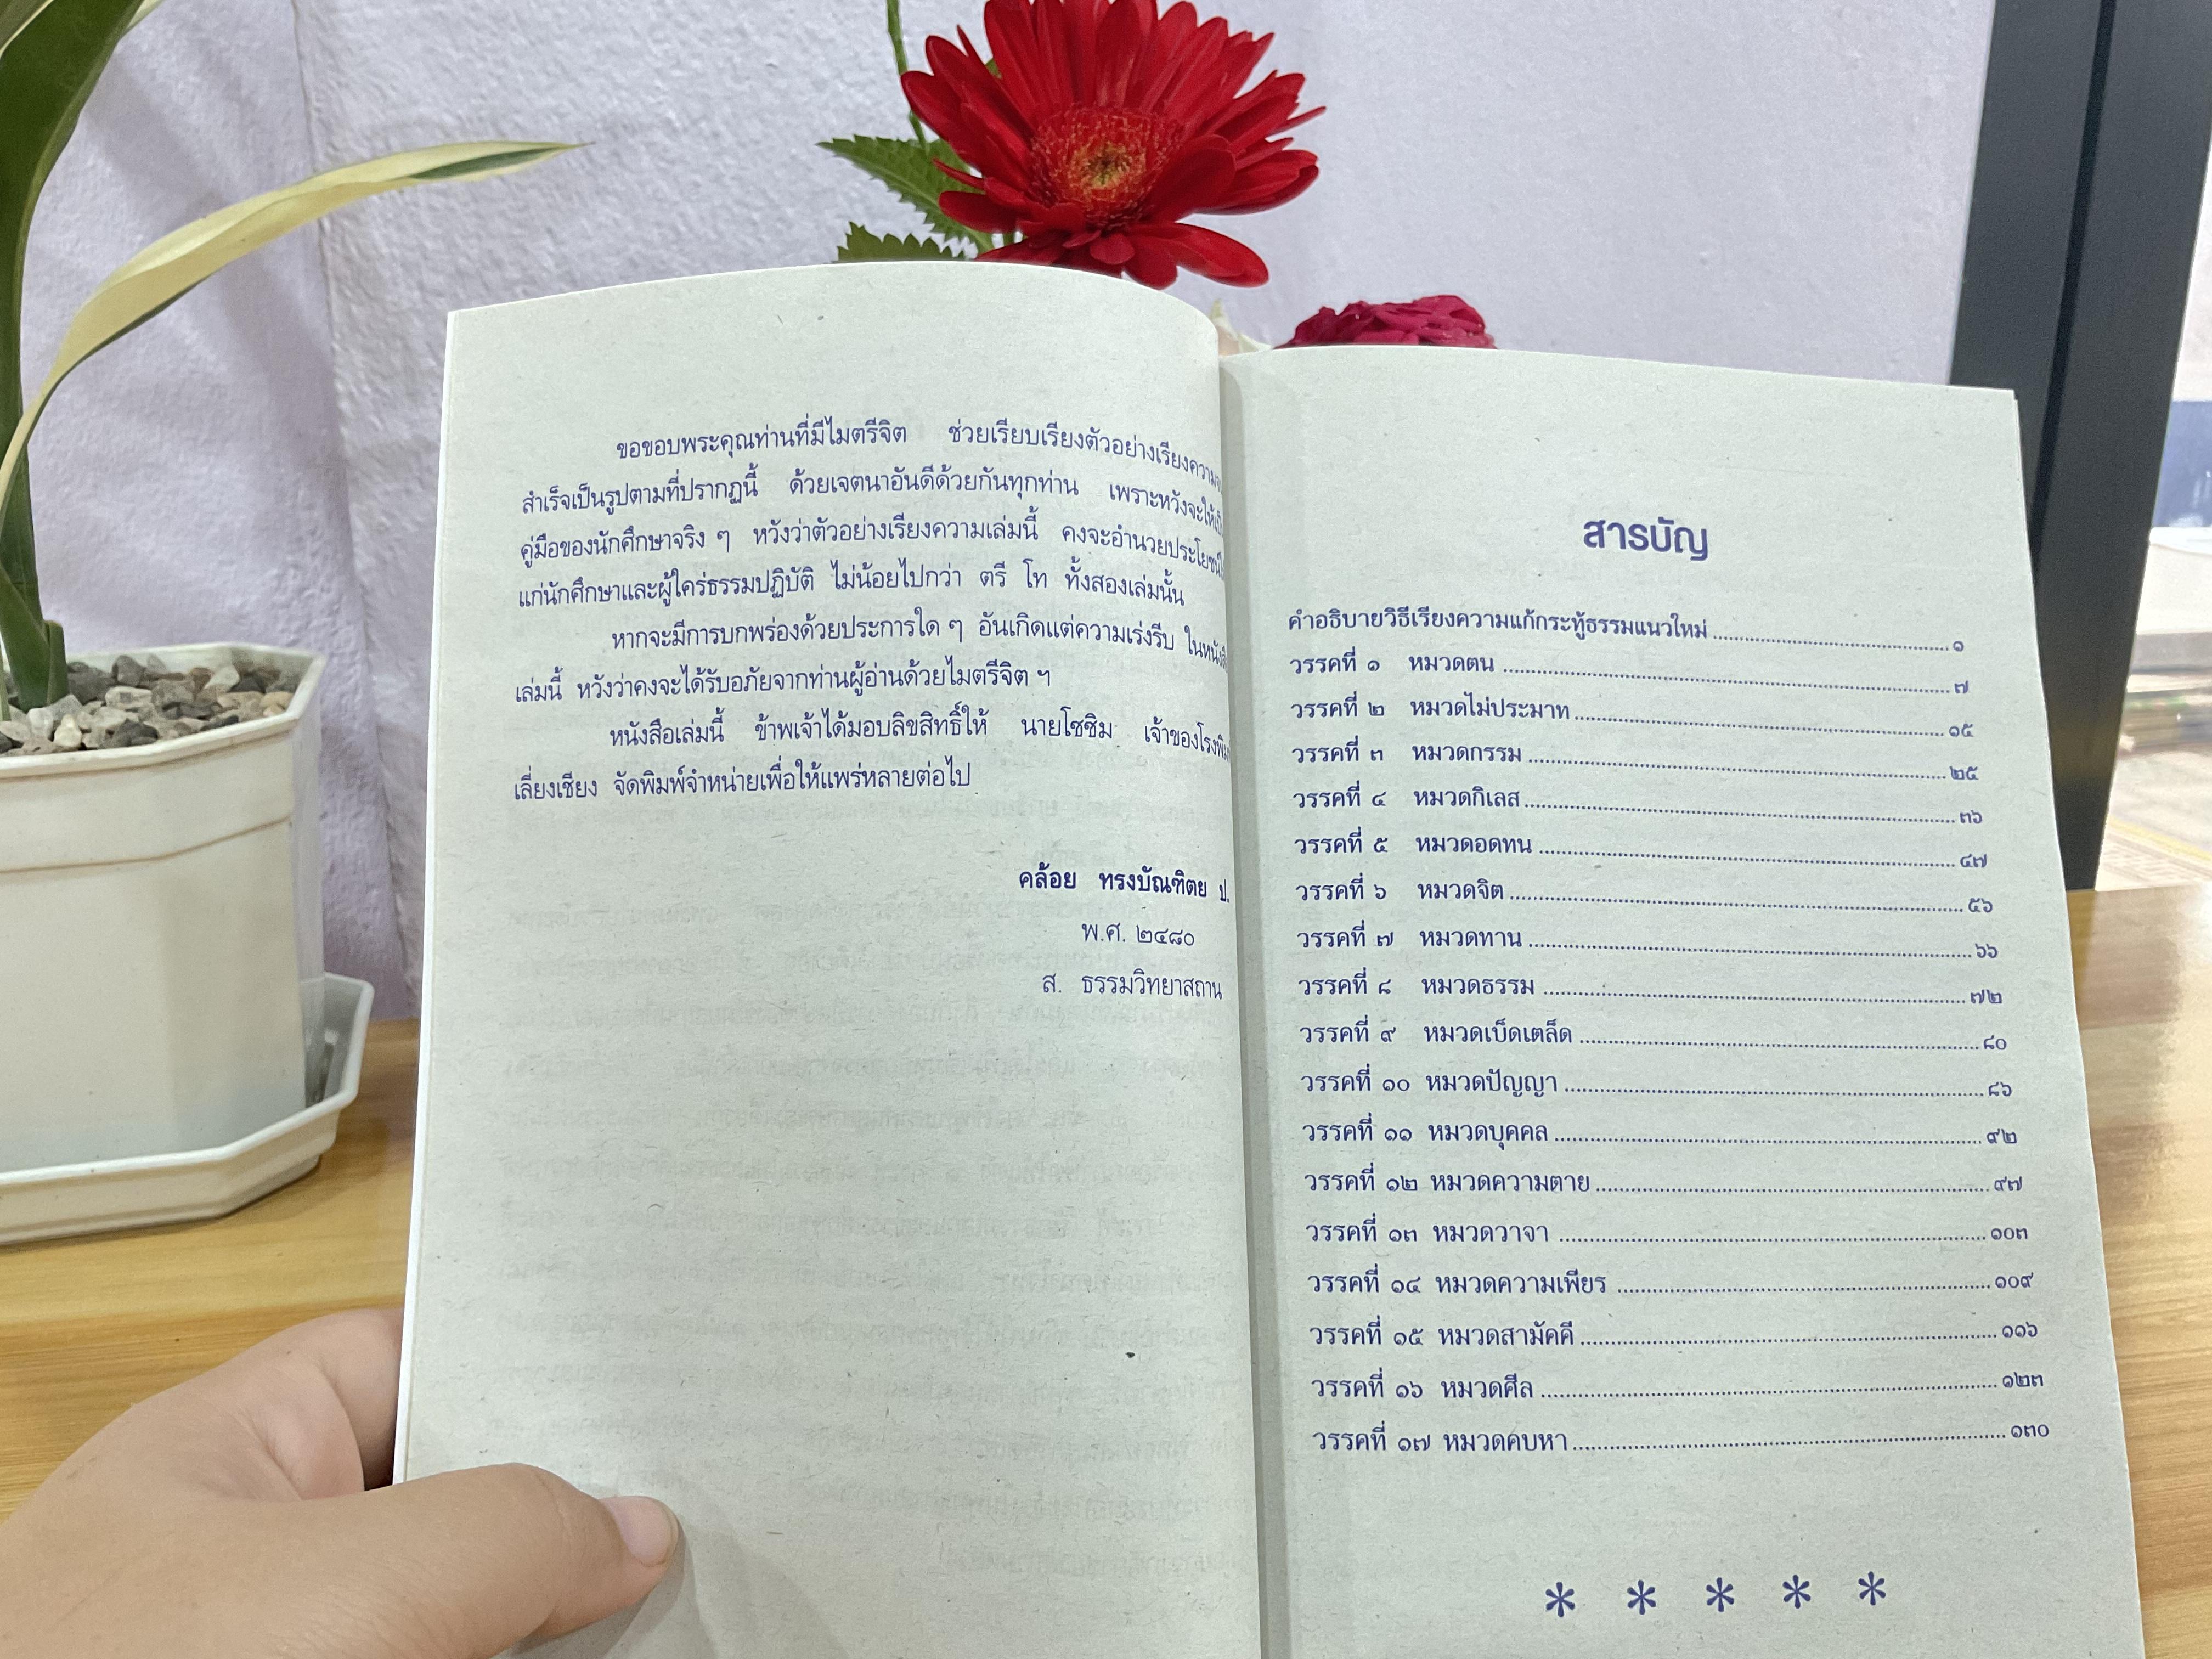 ขอขอบพระคุณท่านที่มีไมตรีจิต ช่วยเรียบเรียงตัวอย่างเรียงความ
สำเร็จเป็นรูปตามที่ปรากฏนี้ ด้วยเจตนาอันดีด้วยกันทุกท่าน เพราะหวังจะให้
คู่มือของนักศึกษาจริง ๆ หวังว่าตัวอย่างเรียงความเล่มนี้ คงจะอำนวยประโยชน์
แก่นักศึกษาและผู้ใคร่ธรรมปฏิบัติ ไม่น้อยไปกว่า ตรี โท ทั้งสองเล่มนั้น
หากจะมีการบกพร่องด้วยประการใด ๆ อันเกิดแต่ความเร่งรีบ ใน
เล่มนี้ หวังว่าคงจะได้รับอภัยจากท่านผู้อ่านด้วยไมตรีจิต ฯ
หนังสือเล่มนี้ ข้าพเจ้าได้มอบลิขสิทธิ์ให้ นายโซซิม เจ้าของ
เลี่ยงเชียง จัดพิมพ์จำหน่ายเพื่อให้แพร่หลายต่อไป
คล้อย ทรงบัณฑิตย ป.
พ.ศ. ๒๔๘๐
ส. ธรรมวิทยาสถาน
สารบัญ
คำอธิบายวิธีเรียงความแก้กระทู้ธรรมแนวใหม่ ๑
วรรคที่ ๑ หมวดตน ๗
วรรคที่ ๒ หมวดไม่ประมาท ๑๕
วรรคที่ ๓ หมวดกรรม ๒๕
วรรคที่ ๔ หมวดกิเลส ๓๖
วรรคที่ ๕ หมวดอดทน ๔๗
วรรคที่ ๖ หมวดจิต ๕๖
วรรคที่ ๗ หมวดทาน ๖๖
วรรคที่ ๘ หมวดธรรม ๗๒
วรรคที่ ๙ หมวดเบ็ดเตล็ด ๘๐
วรรคที่ ๑๐ หมวดปัญญา ๘๖
วรรคที่ ๑๑ หมวดบุคคล ๙๒
วรรคที่ ๑๒ หมวดความตาย ๙๗
วรรคที่ ๑๓ หมวดวาจา ๑๐๓
วรรคที่ ๑๔ หมวดความเพียร ๑๐๙
วรรคที่ ๑๕ หมวดสามัคคี ๑๑๖
วรรคที่ ๑๖ หมวดศีล ๑๒๓
วรรคที่ ๑๗ หมวดคบหา ๑๓๐
* * * * *